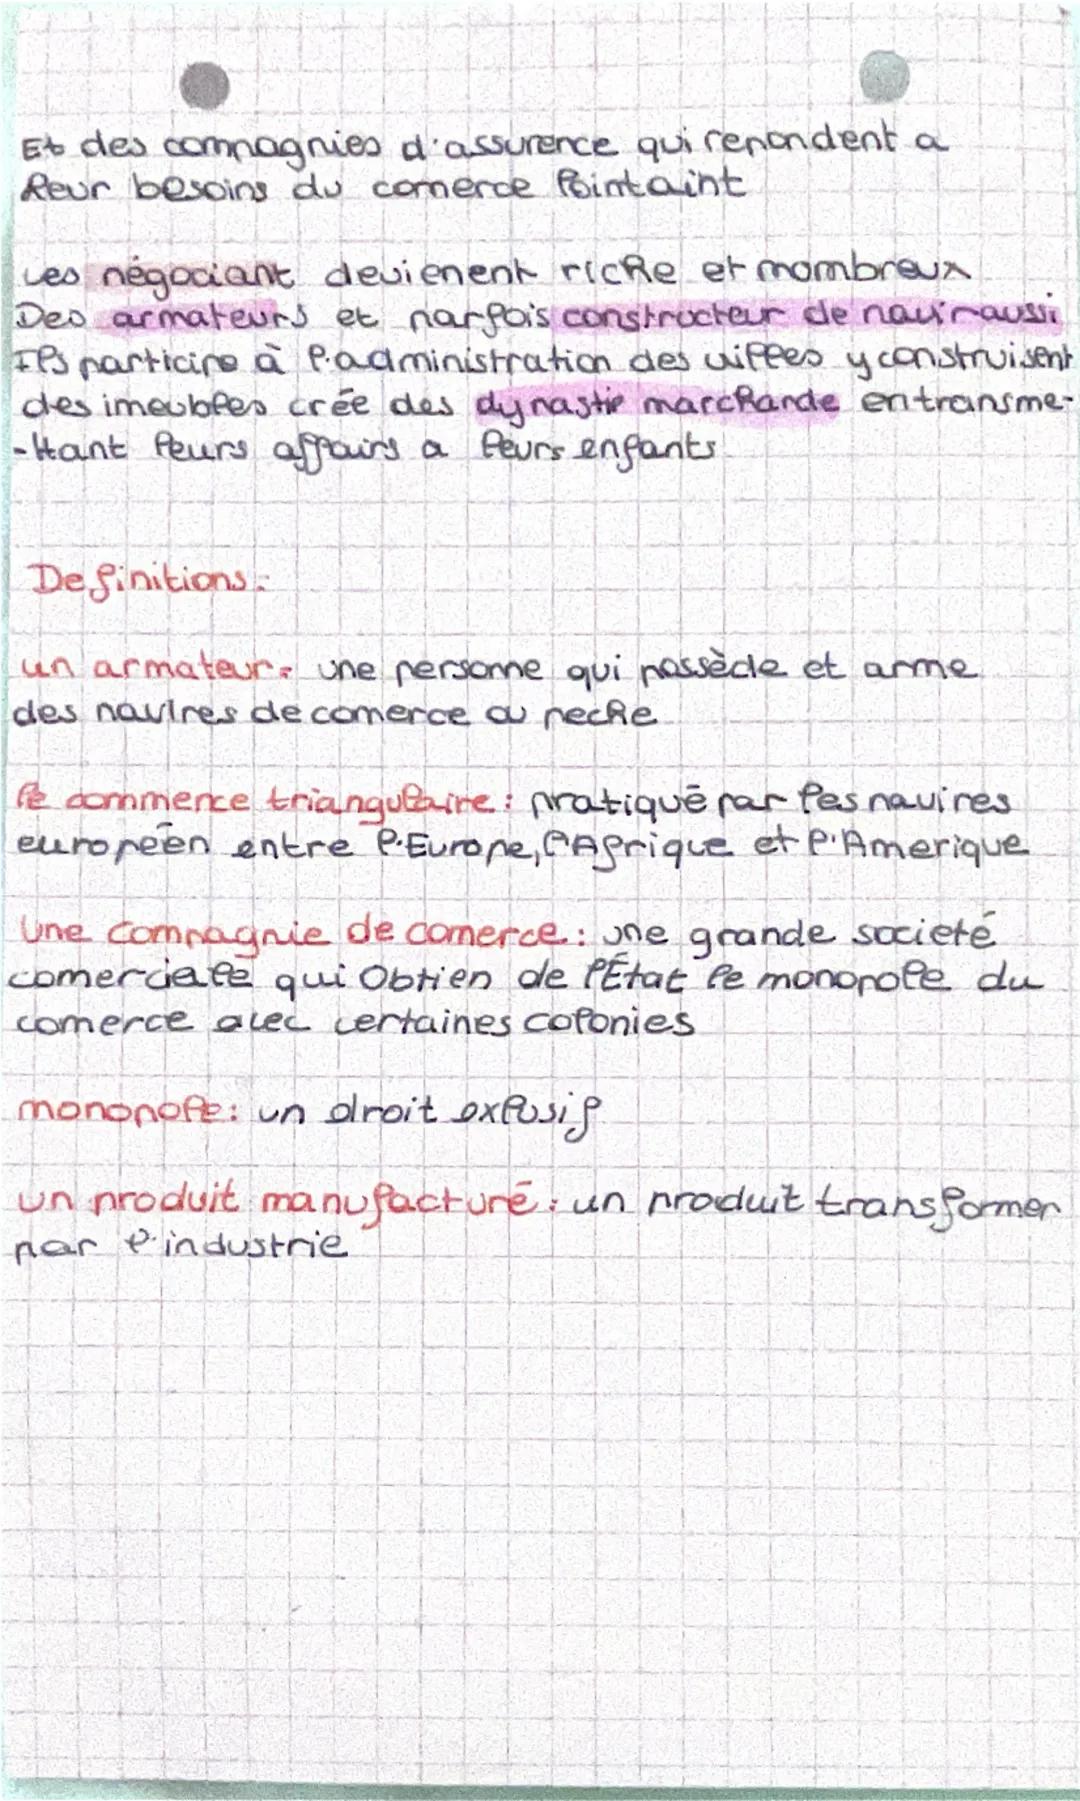 Et des compagnies d'assurence qui repondent a
leur besoins du comerce lointaint
Les négociant devienent riche et nombreux
Des armateurs et parfois constructeur de navir aussi
Ils participe à l'administration des villes y construisent
des imeubles crée des dynastie marchande en transme-
-ttant leurs affairs a leurs enfants
Definitions:
un armateur: une personne qui possède et arme
des navires de comerce ou peche
le commerce triangulaire: pratiqué par les navires
européen entre l'Europe, l'Afrique et l'Amerique
Une compagnie de comerce: une grande societé
comerciale qui obtien de l'État le monopole du
comerce avec certaines colonies
monopole: un droit exlusif
un produit manufacturé: un produit transformer
par l'industrie